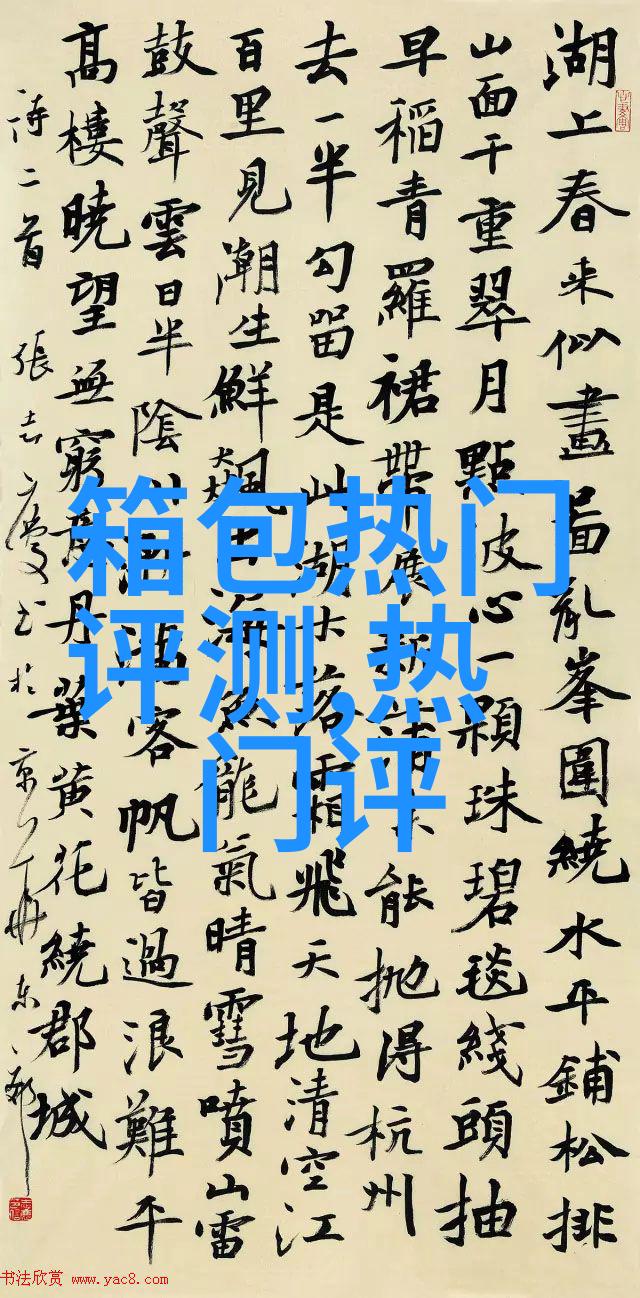 湖上春来似畫啚亂峯圍繞水平鋪松排
山面千重翠月點波心一顆珠碧毯綫頭抽
早稻青羅裙帶展新蒲未能抛得杭州
去一半勾留是此湖木落霜飛天地清空江
百里見潮生鮮飈出海魚龍氣晴雪噴山雷
鼓聲雲日半陰川漸滿客帆皆過浪難平
高樓曉望無窮意丹葉黄花繞郡城
詩二首 張志慶书於京
箱包热门
评测,热
门评
书法欣赏 www.yac8.com